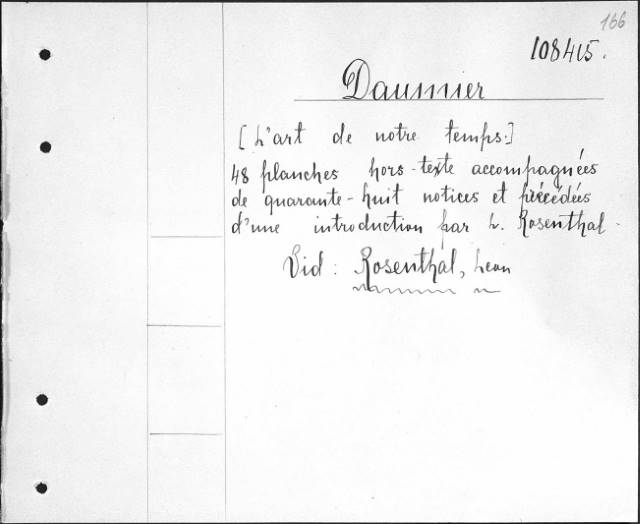 166
108415.
Daumier
[L'art de notre temps.]
48 planches hors-texte accompagnées
de quarante-huit notices et précédées
d'une introduction par L. Rosenthal.
Vid: Rosenthal, Leon